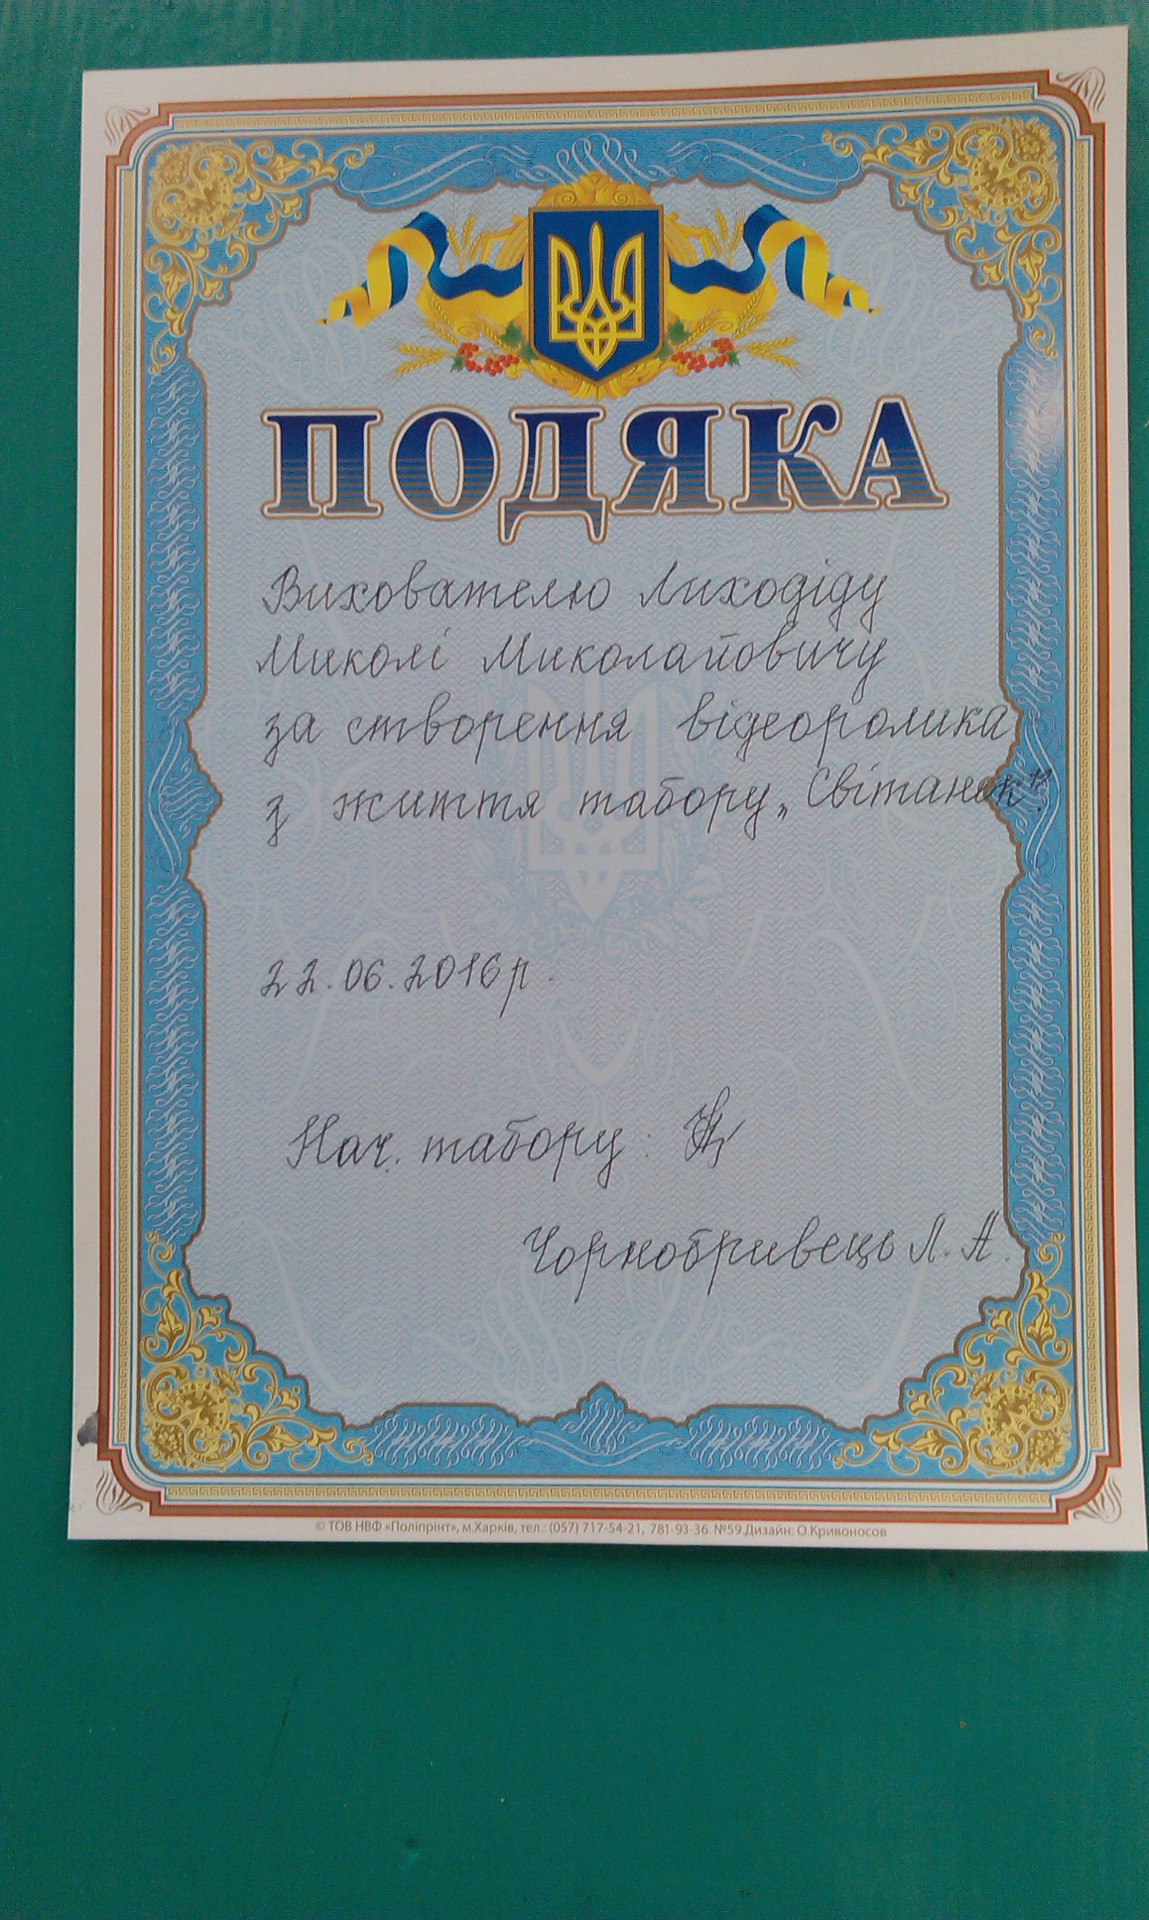 ПОДЯКА
Вихователю Лиходіду
Миколі Миколайовичу
за створення відеоролика
з життя табору „Світанок".
22.06.2016 р.
Нач. табору:
Чорнобривець Л. А.
© ТОВ НВФ «Поліпрінт», м.Харків, тел.: (057) 717-54-21, 781-93-36. №59.Дизайн: О.Кривоносов